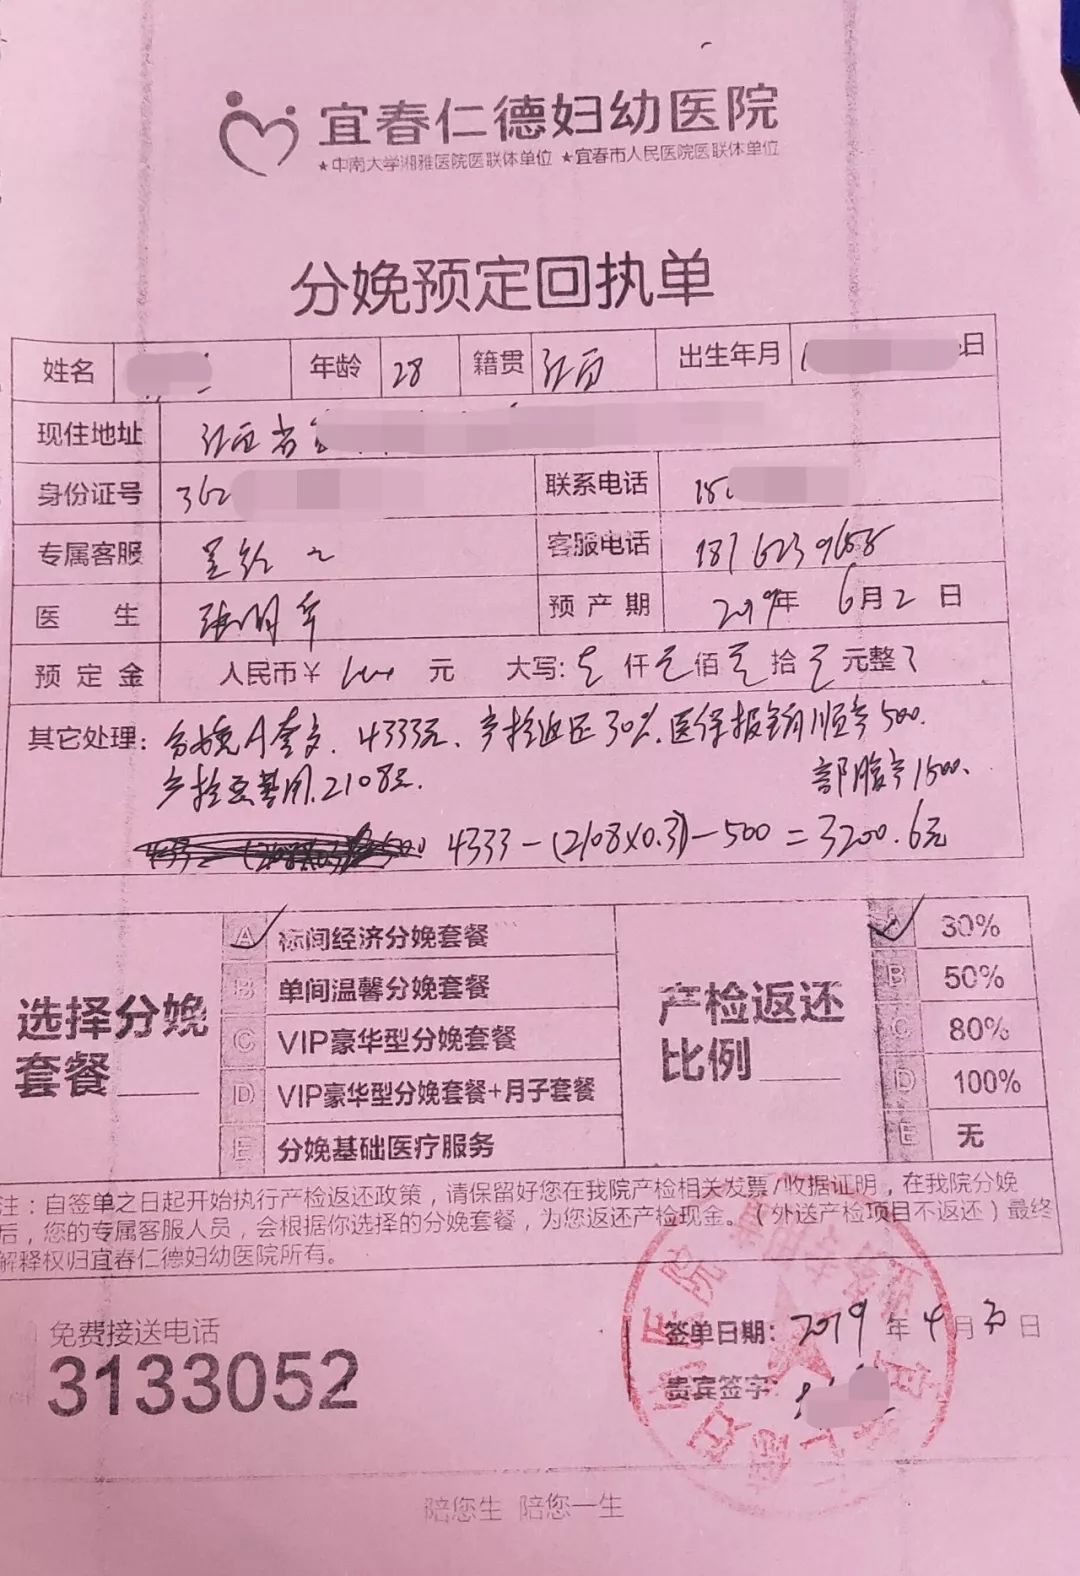 宜春仁德妇幼医院
★中南大学湘雅医院医联体单位 ★宜春市人民医院医联体单位
分娩预定回执单
姓名 年龄 28 籍贯 江西 出生年月 日
现住地址 江西省
身份证号 362 联系电话 180
专属客服 客服电话
医 生 预 产 期 2019年 6月2日
预 定 金 人民币¥ 元 大写: 仟 佰 拾 元整
其它处理: 分娩A套餐. 4333元. 产检返还30%. 医保报销顺产500.
产检总费用. 2108元. 剖腹产1500.
4333-(2108X0.3)-500=3200.6元
选择分娩套餐
A 标间经济分娩套餐
B 单间温馨分娩套餐
C VIP豪华型分娩套餐
D VIP豪华型分娩套餐+月子套餐
E 分娩基础医疗服务
产检返还比例
A 30%
B 50%
C 80%
D 100%
E 无
注：自签单之日起开始执行产检返还政策，请保留好您在我院产检相关发票/收据证明，在我院分娩
后，您的专属客服人员，会根据你选择的分娩套餐，为您返还产检现金。（外送产检项目不返还）最终
解释权归宜春仁德妇幼医院所有。
免费接送电话
3133052
签单日期: 2019年4月 日
贵宾签字:
陪您生 陪您一生